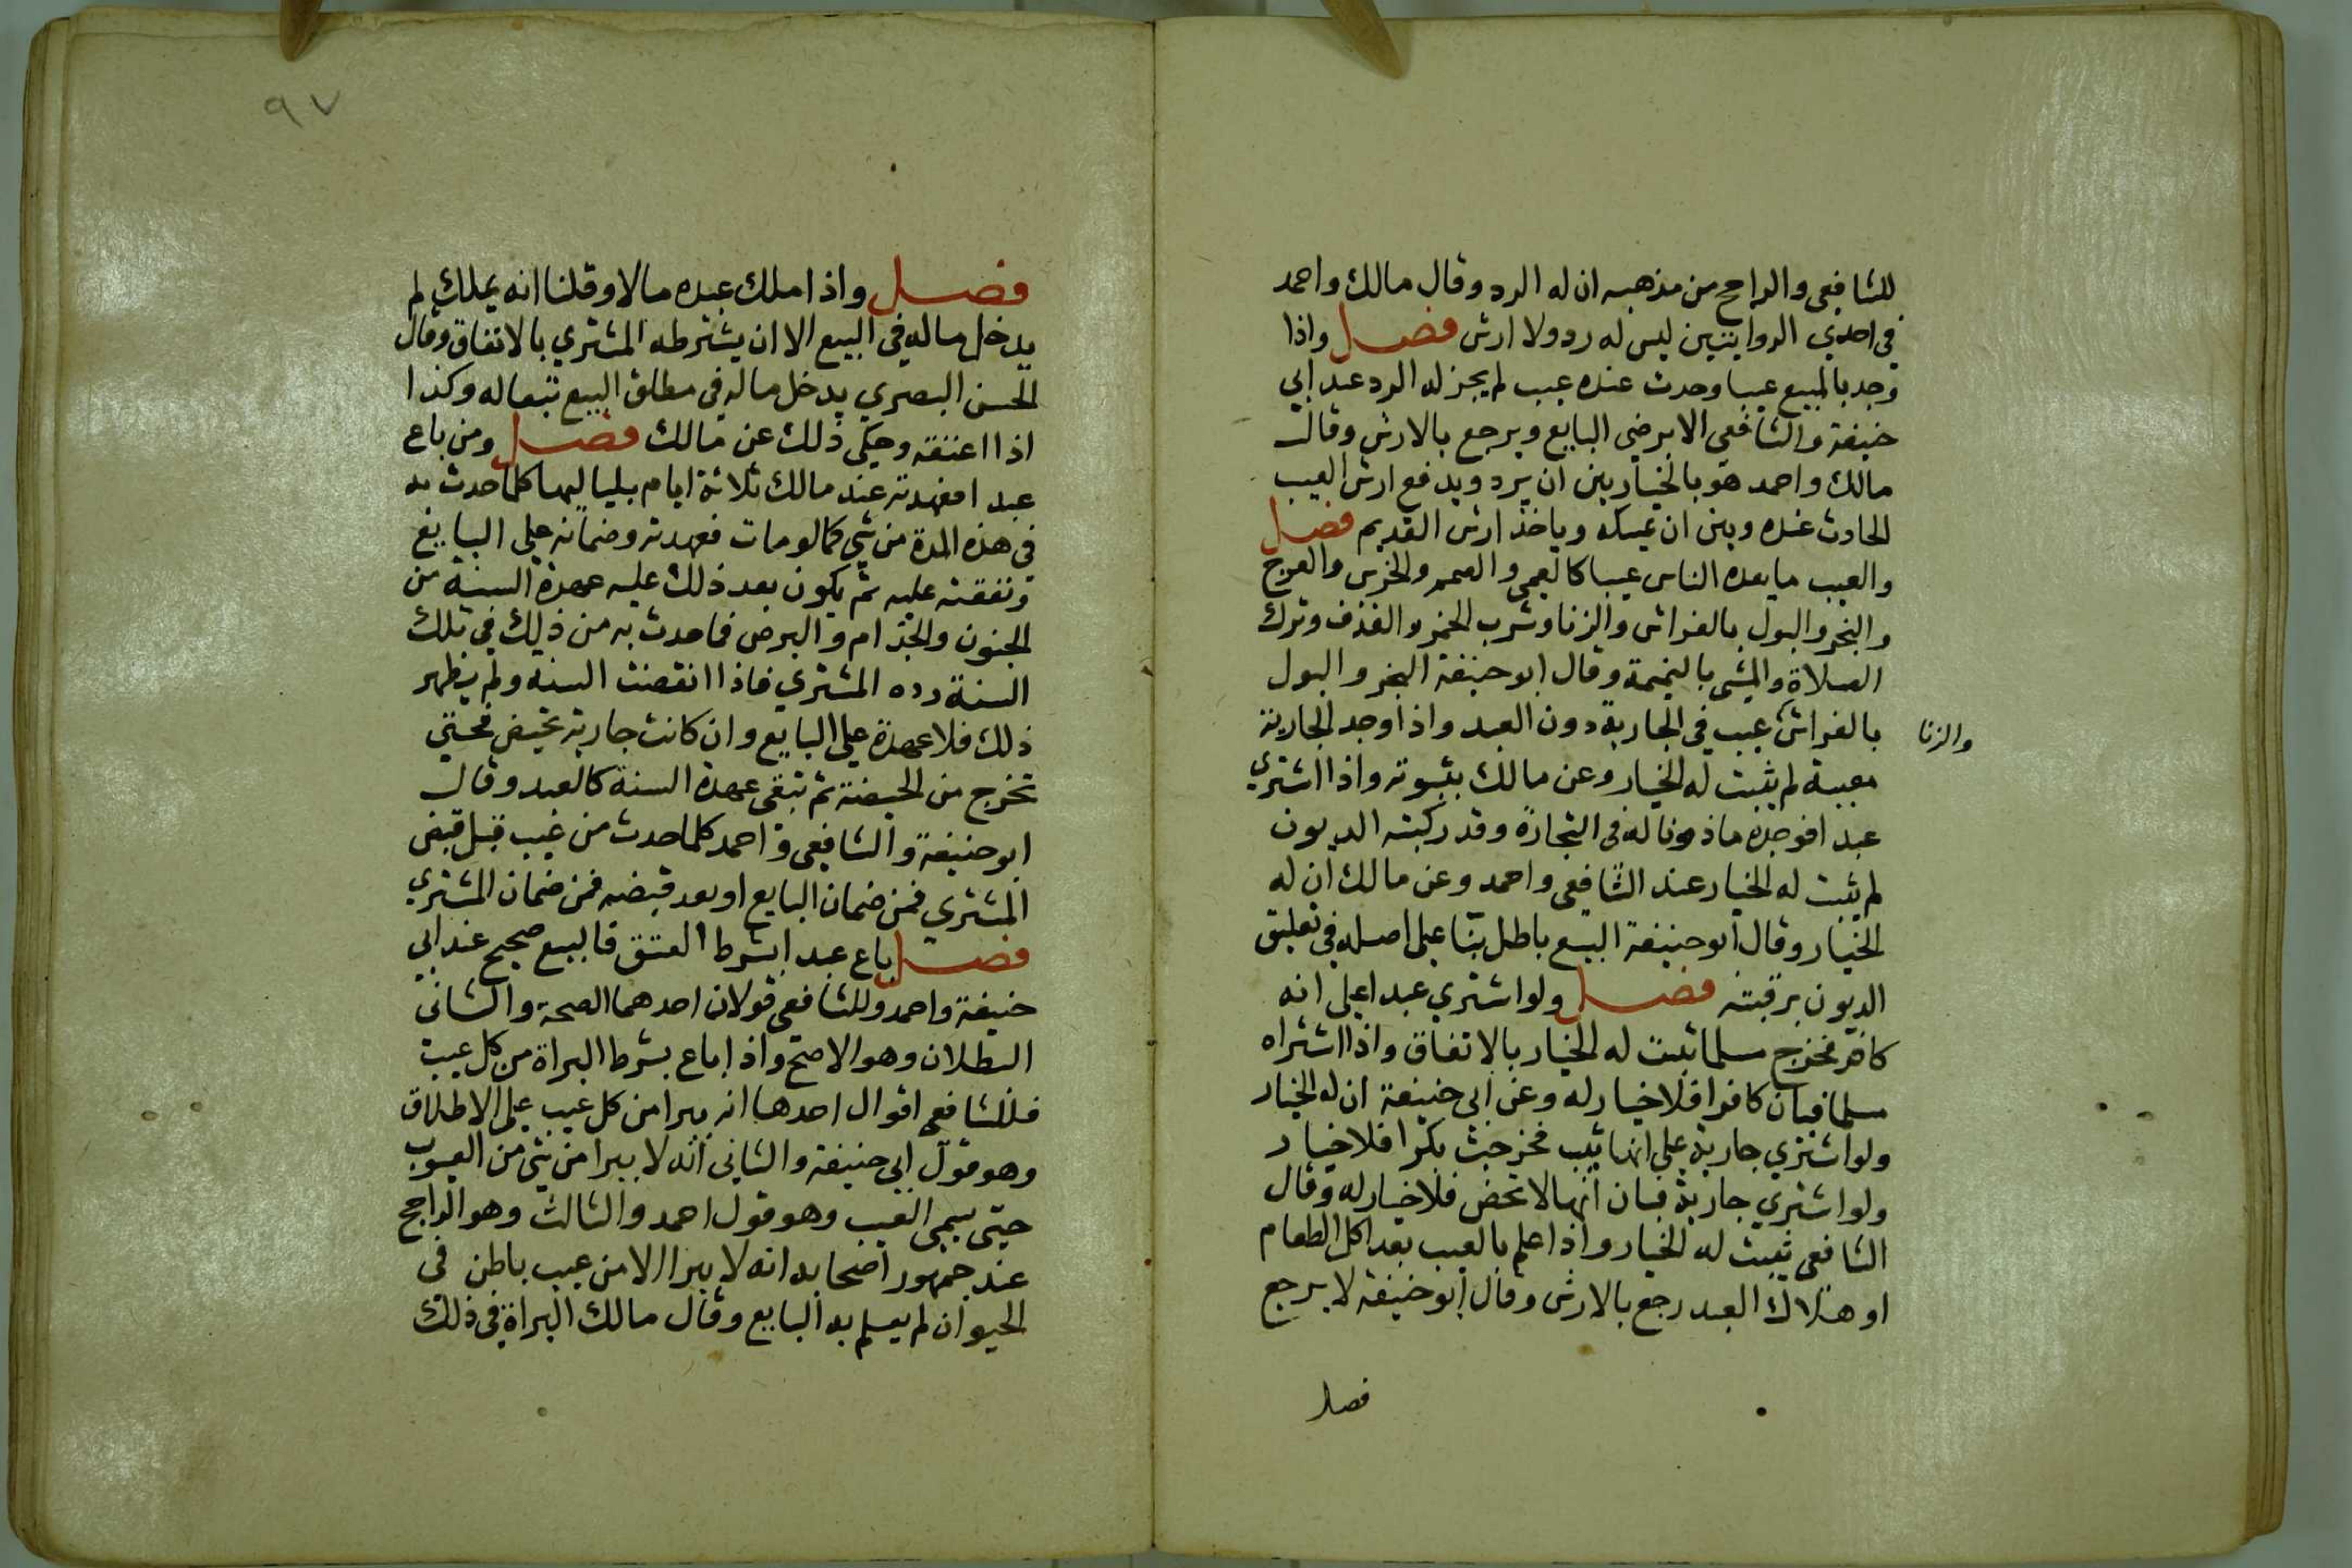 للشافعي والراجح من مذهبه ان له الرد وقال مالك واحمد
في احدي الروايتين ليس له رد ولا ارش فصل واذا
وجد بالمبيع عيبا وحدث عنده عيب لم يجز له الرد عند ابي
حنيفة والشافعي الا برضي البايع ويرجع بالارش وقال
مالك واحمد هو بالخيار بين ان يرد ويدفع ارش العيب
الحادث عنده وبين ان يمسكه وياخذ ارش القديم فصل
والعيب ما يعده الناس عيبا كالعمي والصمم والخرس والعرج
والبخر والبول بالفراش والزنا وشرب الخمر والقذف وترك
الصلاة والمشي بالنميمة وقال ابو حنيفة البخر والبول
بالفراش عيب في الجارية دون العبد واذا وجد الجارية
والزنا
معيبة لم يثبت له الخيار وعن مالك بثبوته واذا اشتري
عبدا فوجده ماذونا له في التجارة وقد ركبته الديون
لم يثبت له الخيار عند الشافعي واحمد وعن مالك ان له
الخيار وقال ابو حنيفة البيع باطل بنا علي اصله في تعليق
الديون برقبته فصل ولو اشتري عبدا علي انه
كافر فخرج مسلما ثبت له الخيار بالاتفاق واذا اشتراه
مسلما فبان كافرا فلا خيار له وعن ابي حنيفة ان له الخيار
ولو اشتري جارية علي انها ثيب فخرجت بكرا فلا خيار
ولو اشتري جارية فبان انها لا تحض فلا خيار له وقال
الشافعي ثبت له الخيار واذا علم بالعيب بعد اكل الطعام
او هلاك العبد رجع بالارش وقال ابو حنيفة لا يرجع
فصل
٩٧
فصل واذا ملك عبده مالا وقلنا انه يملك لم
يدخل ماله في البيع الا ان يشترطه المشتري بالاتفاق وقال
الحسن البصري يدخل ماله في مطلق البيع تبعا له وكذا
اذا اعتقه وحكي ذلك عن مالك فصل ومن باع
عبدا فعهدته عند مالك ثلاثة ايام بلياليها كلما حدث به
في هذه المدة من شي كما لو مات فعهدته وضمانه علي البايع
ونفقته عليه ثم يكون بعد ذلك عليه عهدة السنة من
الجنون والجذام والبرص فما حدث به من ذلك في تلك
السنة رده المشتري فاذا انقضت السنة ولم يظهر
ذلك فلا عهدة علي البايع وان كانت جارية تحيض فحتي
تخرج من الحيضة ثم تبقي عهدة السنة كالعبد وقال
ابو حنيفة والشافعي واحمد كلما حدث من عيب قبل قبض
المشتري فمن ضمان البايع او بعد قبضه فمن ضمان المشتري
فصل باع عبدا بشرط العتق فالبيع صحيح عند ابي
حنيفة واحمد وللشافعي قولان احدهما الصحة والثاني
البطلان وهو الاصح واذا باع بشرط البراة من كل عيب
فللشافعي اقوال احدها انه يبرا من كل عيب علي الاطلاق
وهو قول ابي حنيفة والثاني انه لا يبرا من شي من العيوب
حتي يسمي العيب وهو قول احمد والثالث وهو الراجح
عند جمهور اصحابه انه لا يبرا الا من عيب باطن في
الحيوان لم يعلم به البايع وقال مالك البراة في ذلك